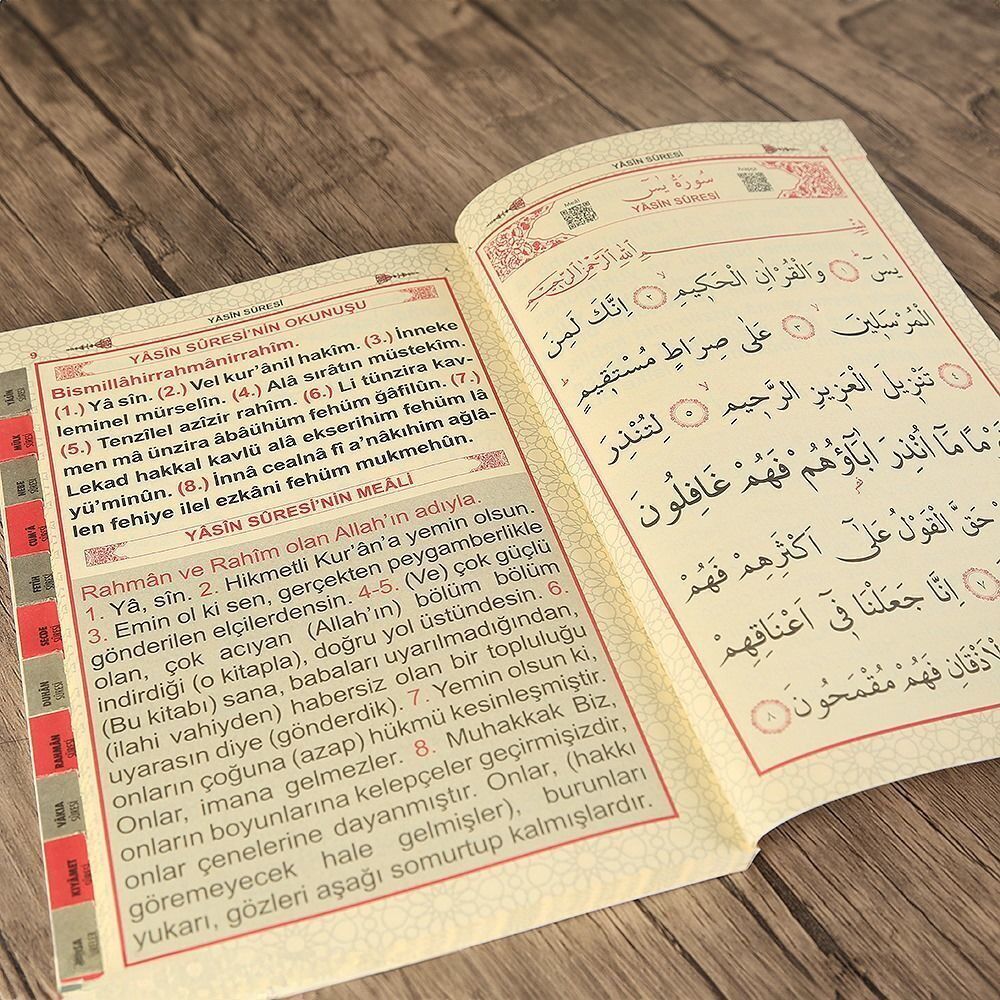 9
YÂSÎN SÛRESİ
YÂSÎN SÛRESİ'NİN OKUNUŞU
Bismillâhirrahmânirrahîm.
(1.) Yâ sîn. (2.) Vel kur'ânil hakîm. (3.) İnneke
leminel mürselîn. (4.) Alâ sırâtın müstekîm.
(5.) Tenzîlel azîzir rahîm. (6.) Li tünzira kav-
men mâ ünzira âbâühüm fehüm ğâfilûn. (7.)
Lekad hakkal kavlü alâ ekserihim fehüm lâ
yü'minûn. (8.) İnnâ cealnâ fî a'nâkıhim ağlâ-
len fehiye ilel ezkâni fehüm mukmehûn.
YÂSÎN SÛRESİ'NİN MEÂLİ
Rahmân ve Rahîm olan Allah'ın adıyla.
1. Yâ, sîn. 2. Hikmetli Kur'ân'a yemin olsun.
3. Emin ol ki sen, gerçekten peygamberlikle
gönderilen elçilerdensin. 4-5. (Ve) çok güçlü
olan, çok acıyan (Allah'ın) bölüm bölüm
indirdiği (o kitapla), doğru yol üstündesin. 6.
(Bu kitabı) sana, babaları uyarılmadığından,
(ilahi vahiyden) habersiz olan bir topluluğu
uyarasın diye (gönderdik). 7. Yemin olsun ki,
onların çoğuna (azap) hükmü kesinleşmiştir.
Onlar, imana gelmezler. 8. Muhakkak Biz,
onların boyunlarına kelepçeler geçirmişizdir,
onlar çenelerine dayanmıştır. Onlar, (hakkı
göremeyecek hale gelmişler), burunları
yukarı, gözleri aşağı somurtup kalmışlardır.
YÂSÎN SÛRESİ
MÜLK SÛRESİ
NEBE SÛRESİ
CUM'A SÛRESİ
FETİH SÛRESİ
SECDE SÛRESİ
DUHÂN SÛRESİ
RAHMÂN SÛRESİ
VÂKIA SÛRESİ
KIYÂMET SÛRESİ
KISA SÛRELER
YÂSÎN SÛRESİ
سُورَةُ يٰسٓ
Meâli
Arapça
YÂSÎN SÛRESİ
اللّٰهِ الرَّحْمٰنِ الرَّحِيمِ
يٰسٓ ١ وَالْقُرْاٰنِ الْحَكِيمِ ٢ اِنَّكَ لَمِنَ
الْمُرْسَلِينَ ٣ عَلٰى صِرَاطٍ مُسْتَقِيمٍ
تَنْزِيلَ الْعَزِيزِ الرَّحِيمِ ٥ لِتُنْذِرَ
مَا اُنْذِرَ اٰبَاؤُهُمْ فَهُمْ غَافِلُونَ
حَقَّ الْقَوْلُ عَلٰٓى اَكْثَرِهِمْ فَهُمْ
٧ اِنَّا جَعَلْنَا فٓي اَعْنَاقِهِمْ
فَهُمْ مُقْمَحُونَ ٨